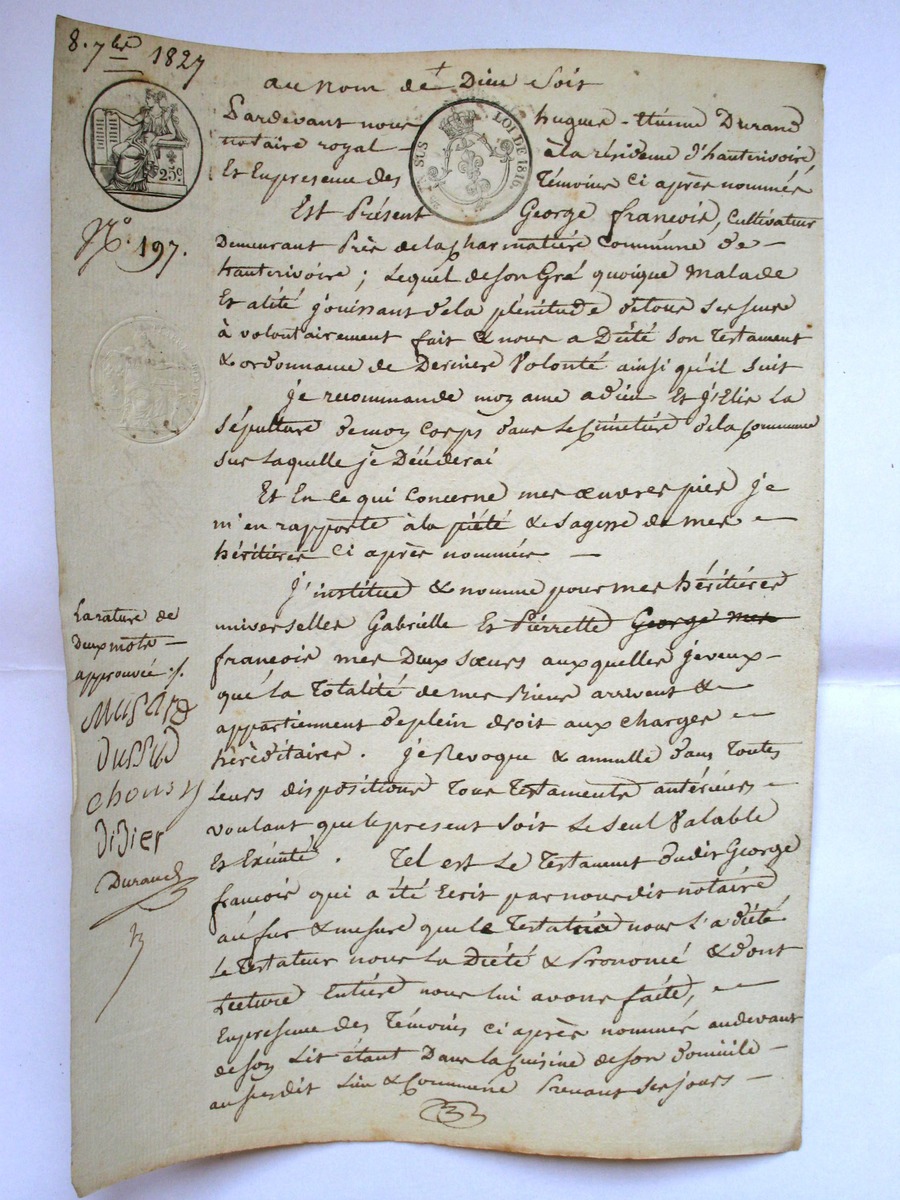 8. 7bre 1827
au nom de Dieu soit
25c
SUS LOI DE 1816.
Pardevant nous hugues - Etienne Durand
notaire royal - à la résidence d'hauterivoire,
Et En presence des Témoins Ci après nommés
Est Présent George francois, Cultivateur
N.o 197.
Demeurant Près de la Charmatière Commune de -
hauterivoire ; Lequel de son Gré quoique Malade
Et alité jouissant de la plénitude de tous ses sens
à volontairement fait & nous a Dicté son Testament
& ordonnance de Derniere Volonté ainsi qu'il suit
je recommande moy ame a dieu Et j'Elis La
sépulture de moy Corps dans Le Cimetiere de la Commune
sur Laquelle je Décéderai
Et En Ce qui Concerne mes œuvres pies je
m'en rapporte à la piété & sagesse de mes -
héritieres Ci après nommées -
j'institue & nomme pour mes héritieres
universelles Gabrielle Et Pierrette George mes
francois mes Deux Sœurs aux quelles je veux -
que La Totalité de mes Biens arrivent &
appartiennent de plein droit aux Charges -
hérèditaires. je Revoque & annulle dans Toutes
Leurs dispositions Tous Testaments antérieurs -
voulant que le present soit Le seul Valable
Et Exécuté. Tel est Le Testament dudit George
francois qui a été Ecrit par nous dit notaire
au fur & mesure que Le Testatrice nous L'a dicté
Le Testateur nous La Dicté & Prononcé & dont
Lecture Entière nous lui avons faite, -
En presence des Témoins Ci après nommés au devant
de soy Lit étant Dans La Cuisine de son domicile -
au susdit Lieu & Commune Prenant ses jours -
La rature de
Deux mots -
approuvée ./.
Musard
Dussud
Choussy
Didier
Durand